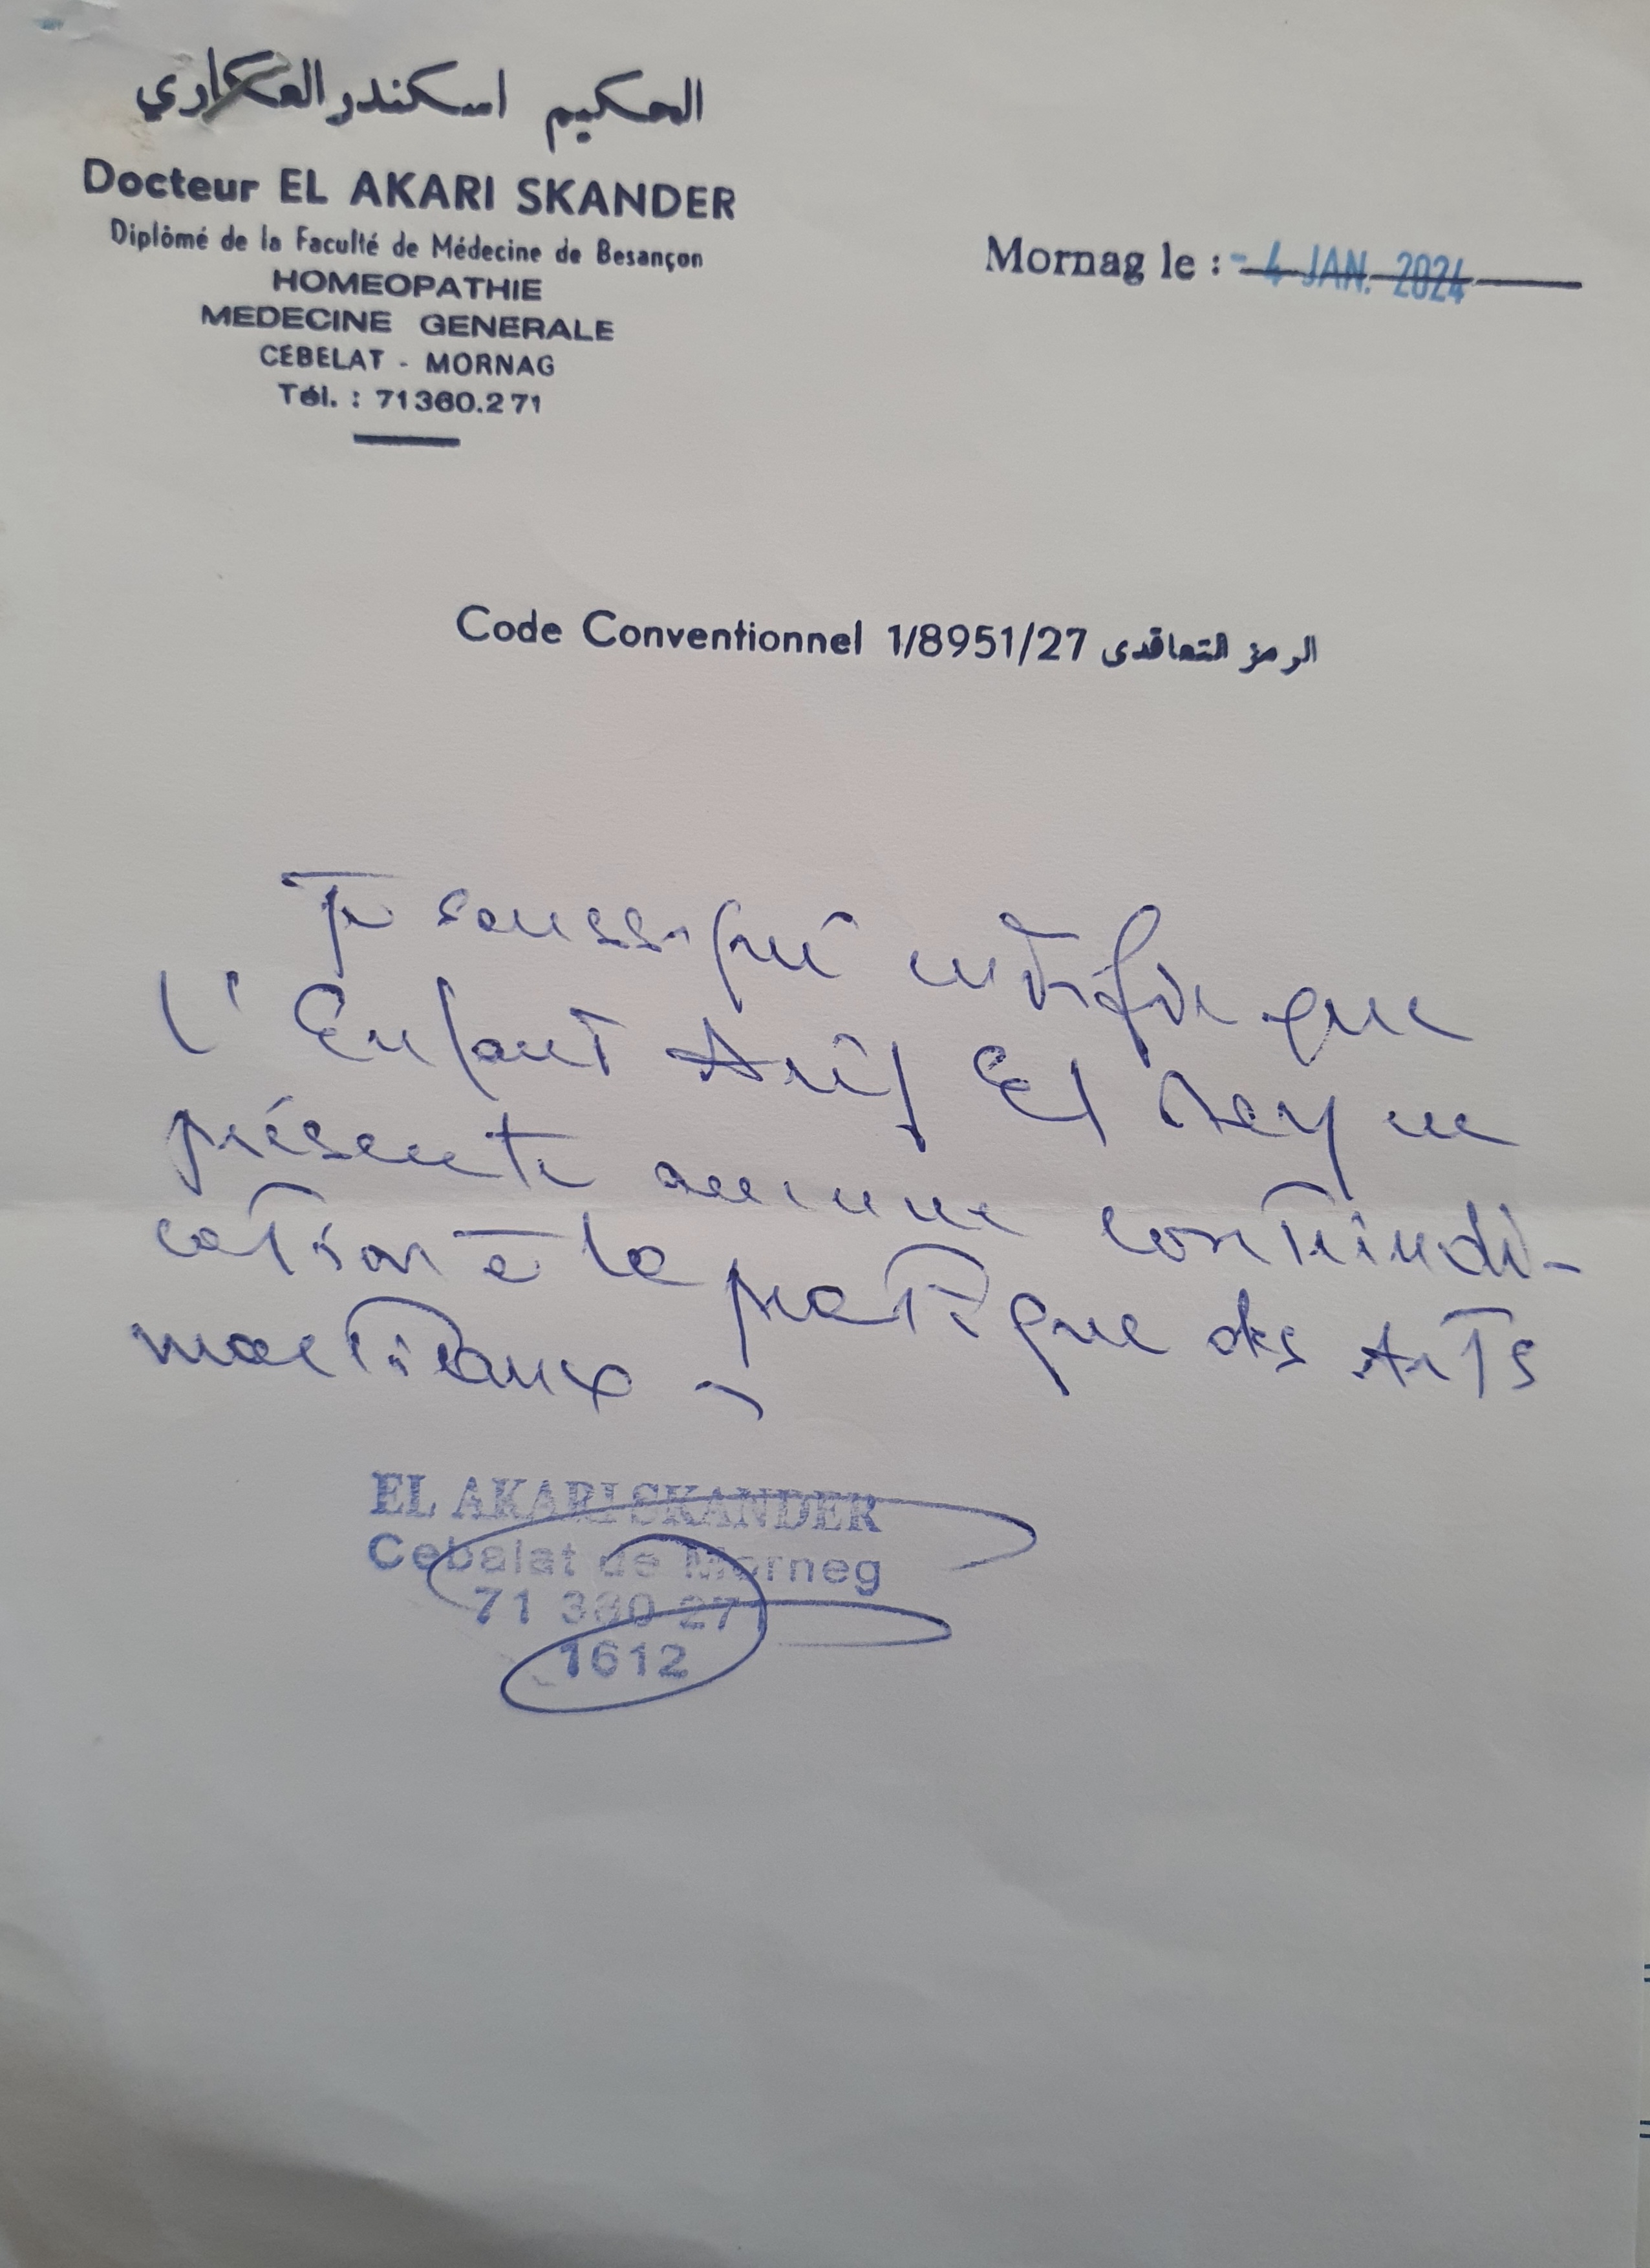 الحكيم اسكندر العكاري
Docteur EL AKARI SKANDER
Diplômé de la Faculté de Médecine de Besançon
HOMEOPATHIE
MEDECINE GENERALE
CEBELAT - MORNAG
Tél. : 71360.271
Mornag le : - 4 JAN. 2024
Code Conventionnel 1/8951/27 الرمز التعاقدى
Je soussigné certifie que
l'Enfant El ne
présente aucune contreindi-
cation à la pratique des Arts
martiaux
EL AKARI SKANDER
Cebalat de Morneg
71 360 271
1612